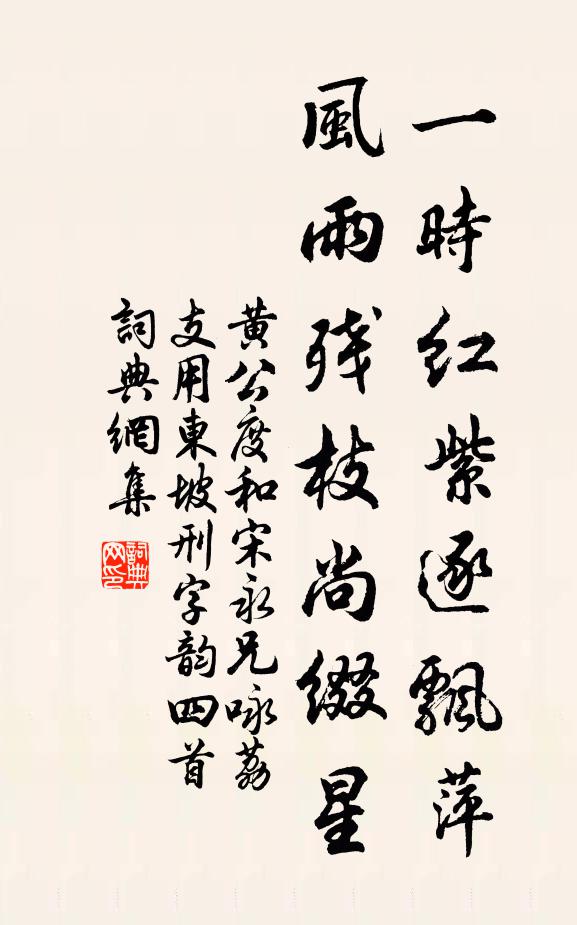 一時紅紫逐飄萍
風雨殘枝尚綴星
黄公度和宋永兄咏荔
支用東坡刑字韵四首
詞典網集
詞典网印